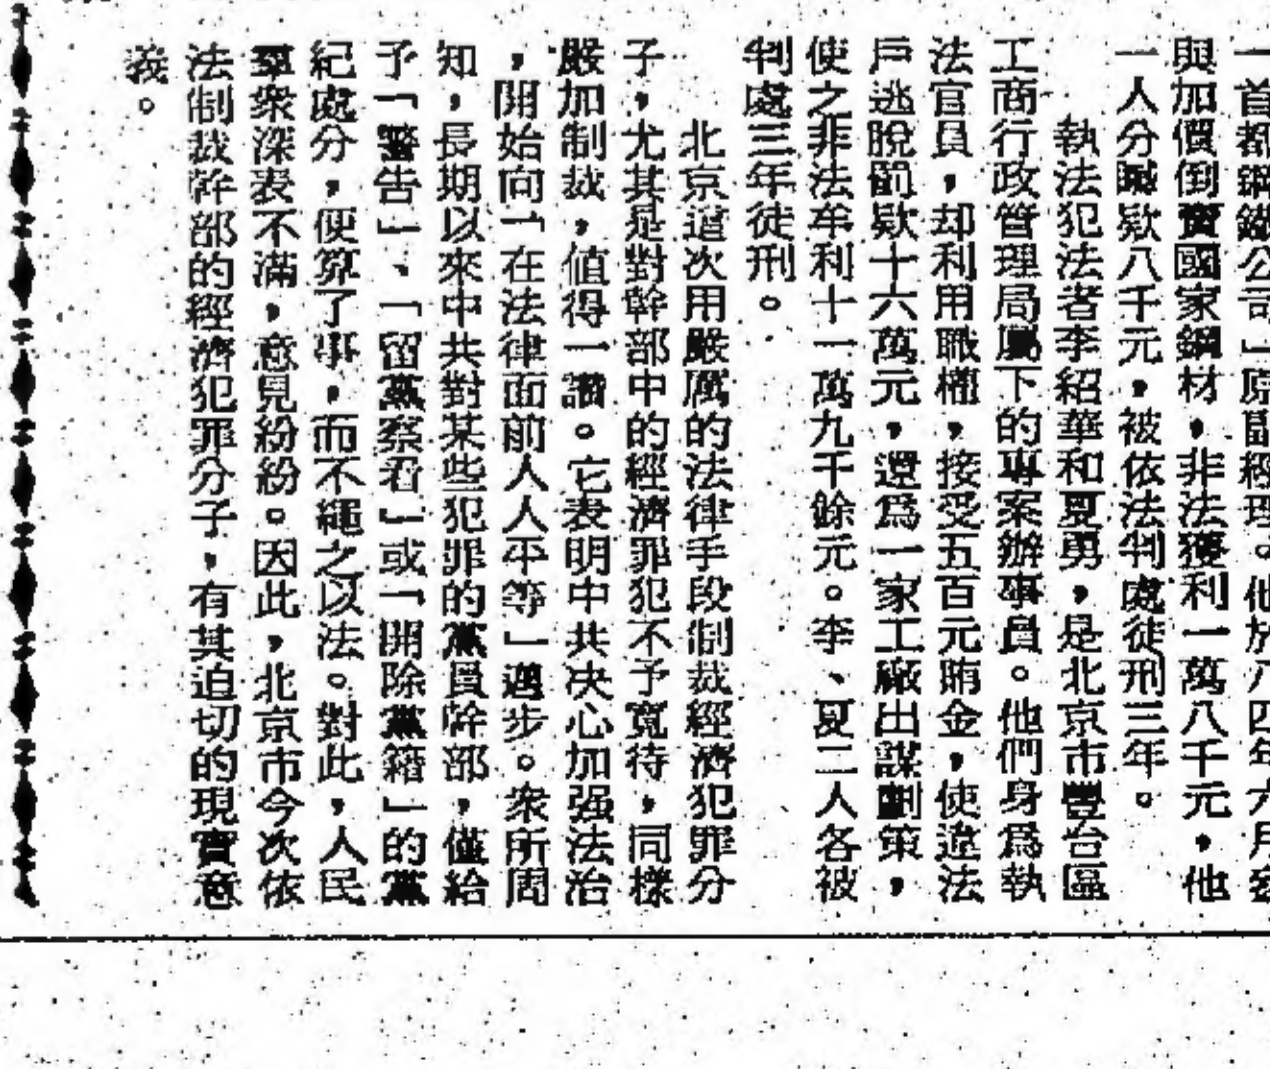 一首都鋼鐵公司」原副經理。他於八四年六月參
與加價倒賣國家鋼材，非法獲利一萬八千元，他
一人分贓欵八千元，被依法判處徒刑三年。
執法犯法者李紹華和夏勇，是北京市豐台區
工商行政管理局屬下的專案辦事員。他們身爲執
法官員，却利用職權，接受五百元賄金，使違法
戶逃脫罰欵十六萬元，還爲一家工廠出謀劃策，
使之非法牟利十一萬九千餘元。李、夏二人各被
判處三年徒刑。
北京這次用嚴厲的法律手段制裁經濟犯罪分
子，尤其是對幹部中的經濟罪犯不予寬待，同樣
嚴加制裁，值得一讚。它表明中共決心加强法治
，開始向「在法律面前人人平等」邁步。衆所周
知，長期以來中共對某些犯罪的黨員幹部，僅給
予「警告」、「留黨察看」或「開除黨籍」的黨
紀處分，便算了事，而不繩之以法。對此，人民
羣衆深表不滿，意見紛紛。因此，北京市今次依
法制裁幹部的經濟犯罪分子，有其迫切的現實意
義。